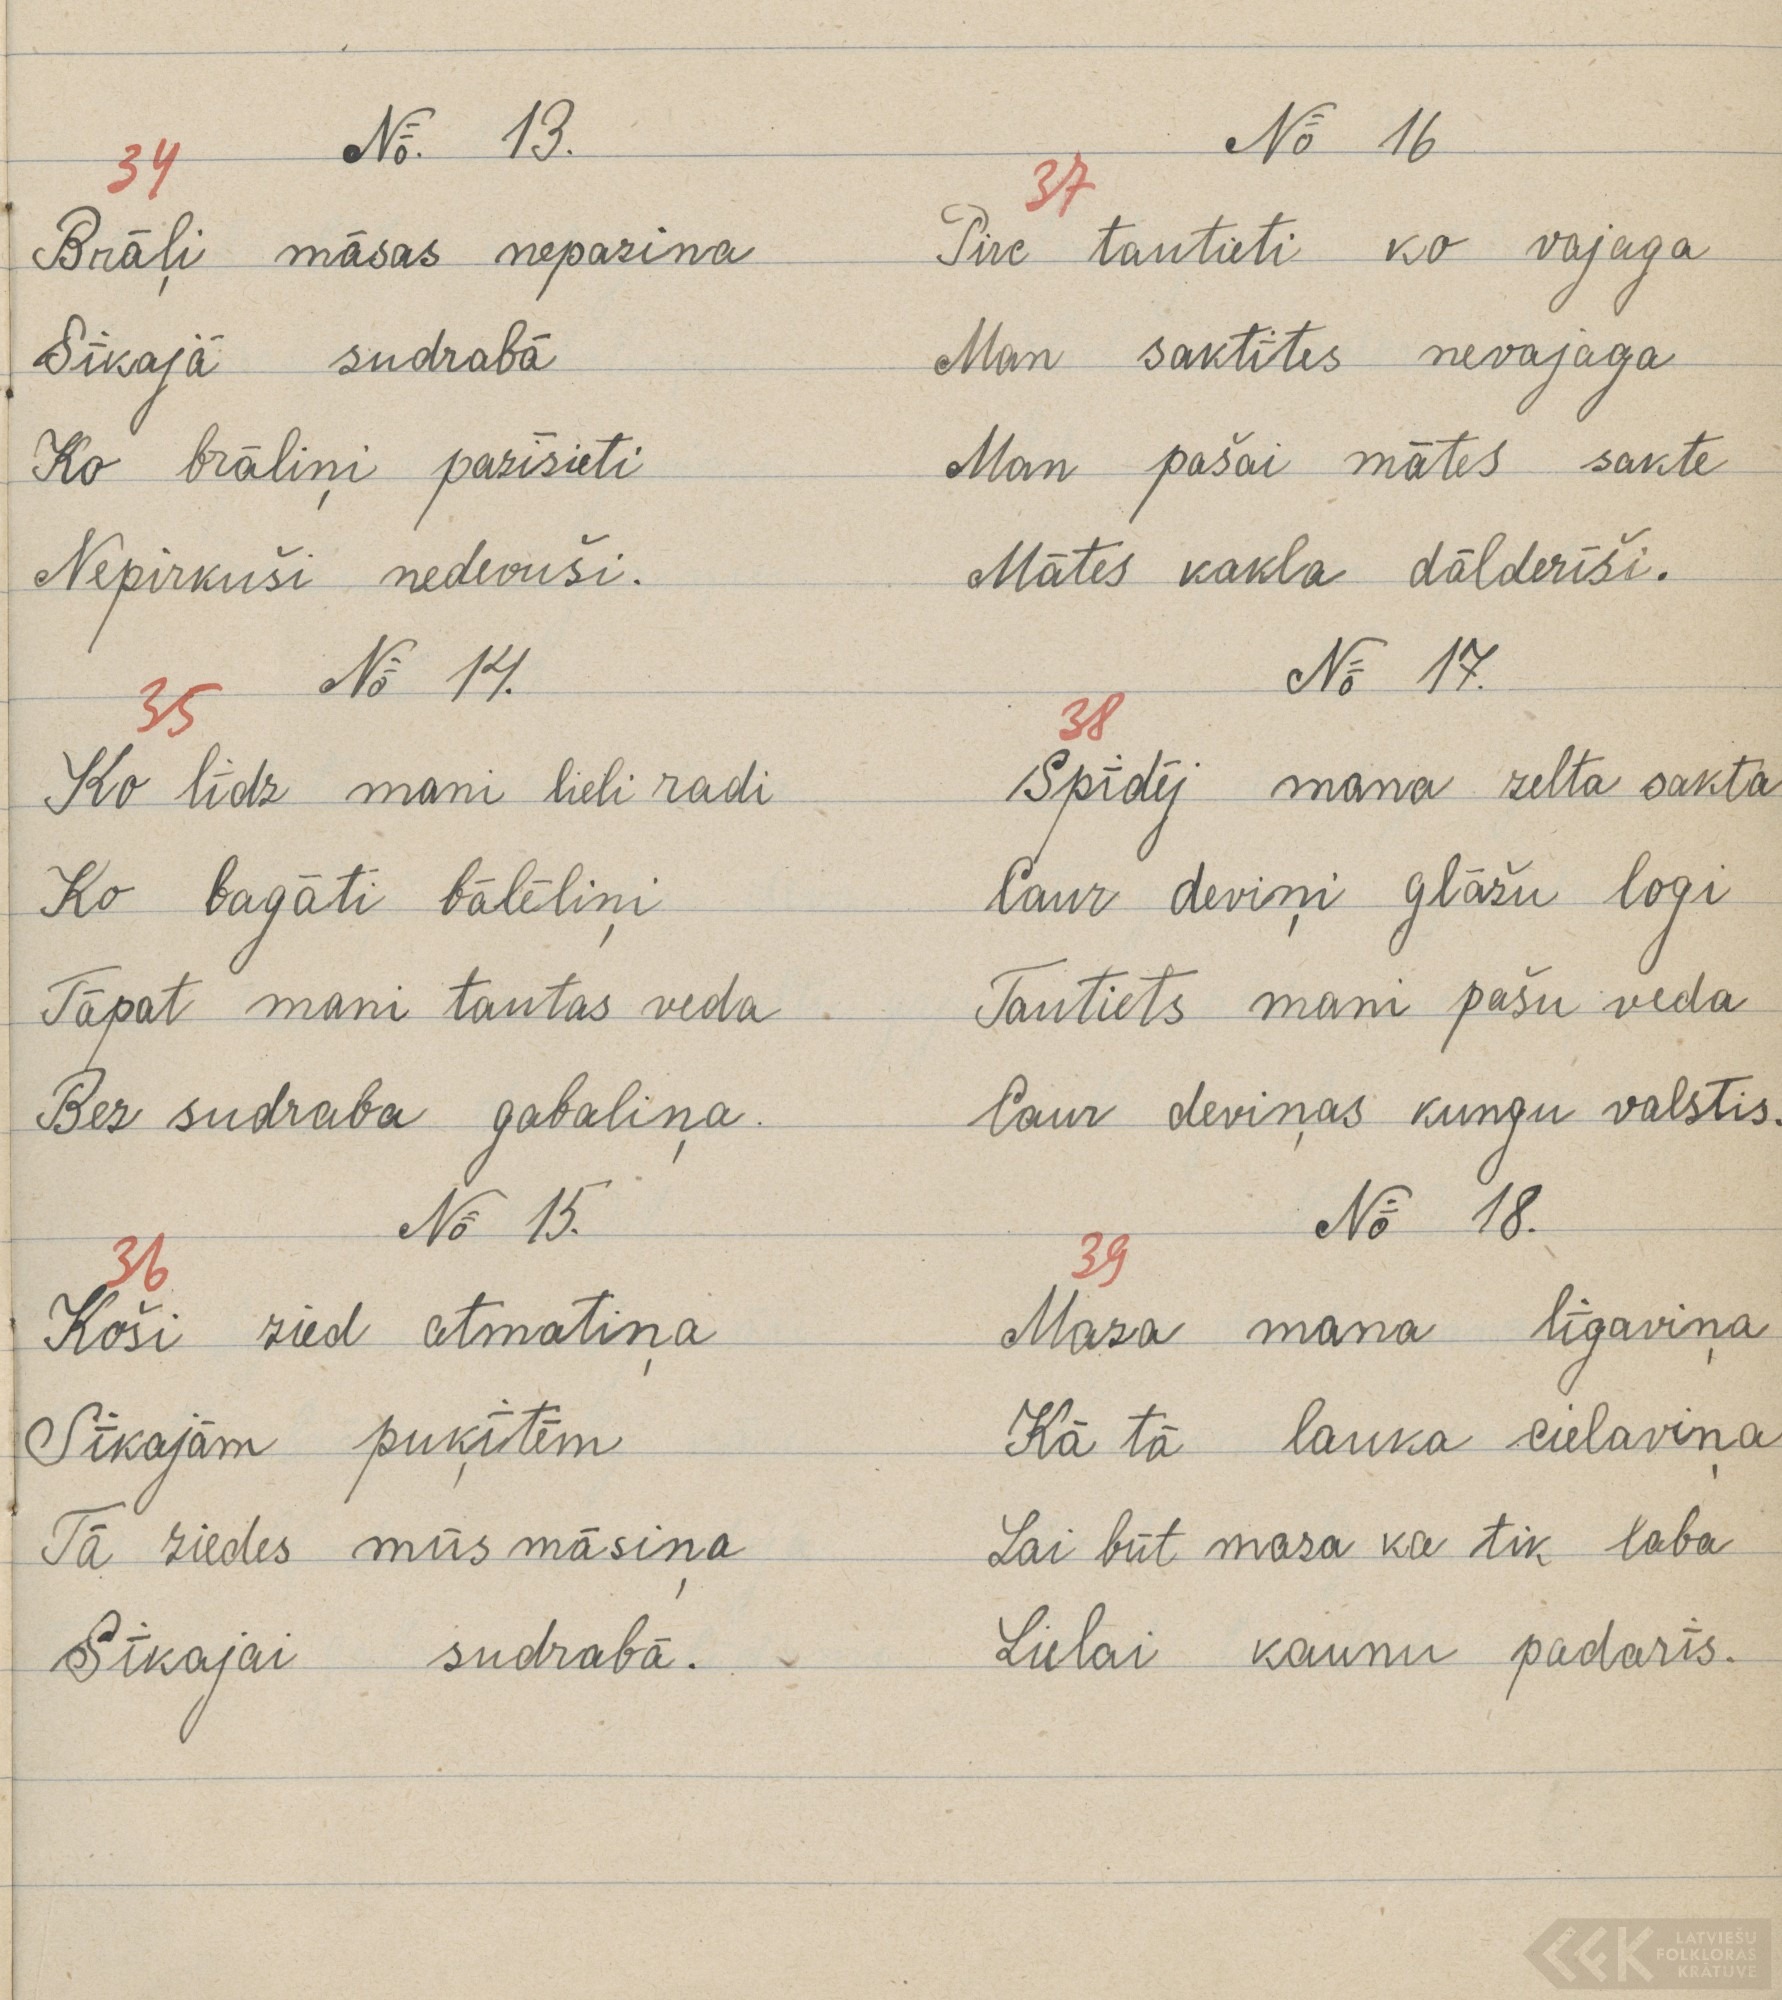 No. 13.
34
Brāļi māsas nepazina
Sīkajā sudrabā
Ko brāliņi pazīsieti
Nepirkuši nedevuši.
No 14.
35
Ko līdz mani lieli radi
Ko bagāti bālēliņi
Tāpat mani tautas veda
Bez sudraba gabaliņa.
No 15.
36
Koši zied atmatiņa
Sīkajām puķītēm
Tā ziedes mūs māsiņa
Sīkajai sudrabā.
No 16
37
Pirc tautieti ko vajaga
Man saktītes nevajaga
Man pašai mātes sakte
Mātes kakla dālderīši.
No 17.
38
Spīdēj mana zelta sakta
Caur deviņi glāžu logi
Tautiets mani pašu veda
Caur deviņas kungu valstis.
No 18.
39
Maza mana līgaviņa
Kā tā lauka cielaviņa
Lai būt maza ka tik laba
Lielai kaunu padarīs.
LATVIEŠU
FOLKLORAS
KRĀTUVE